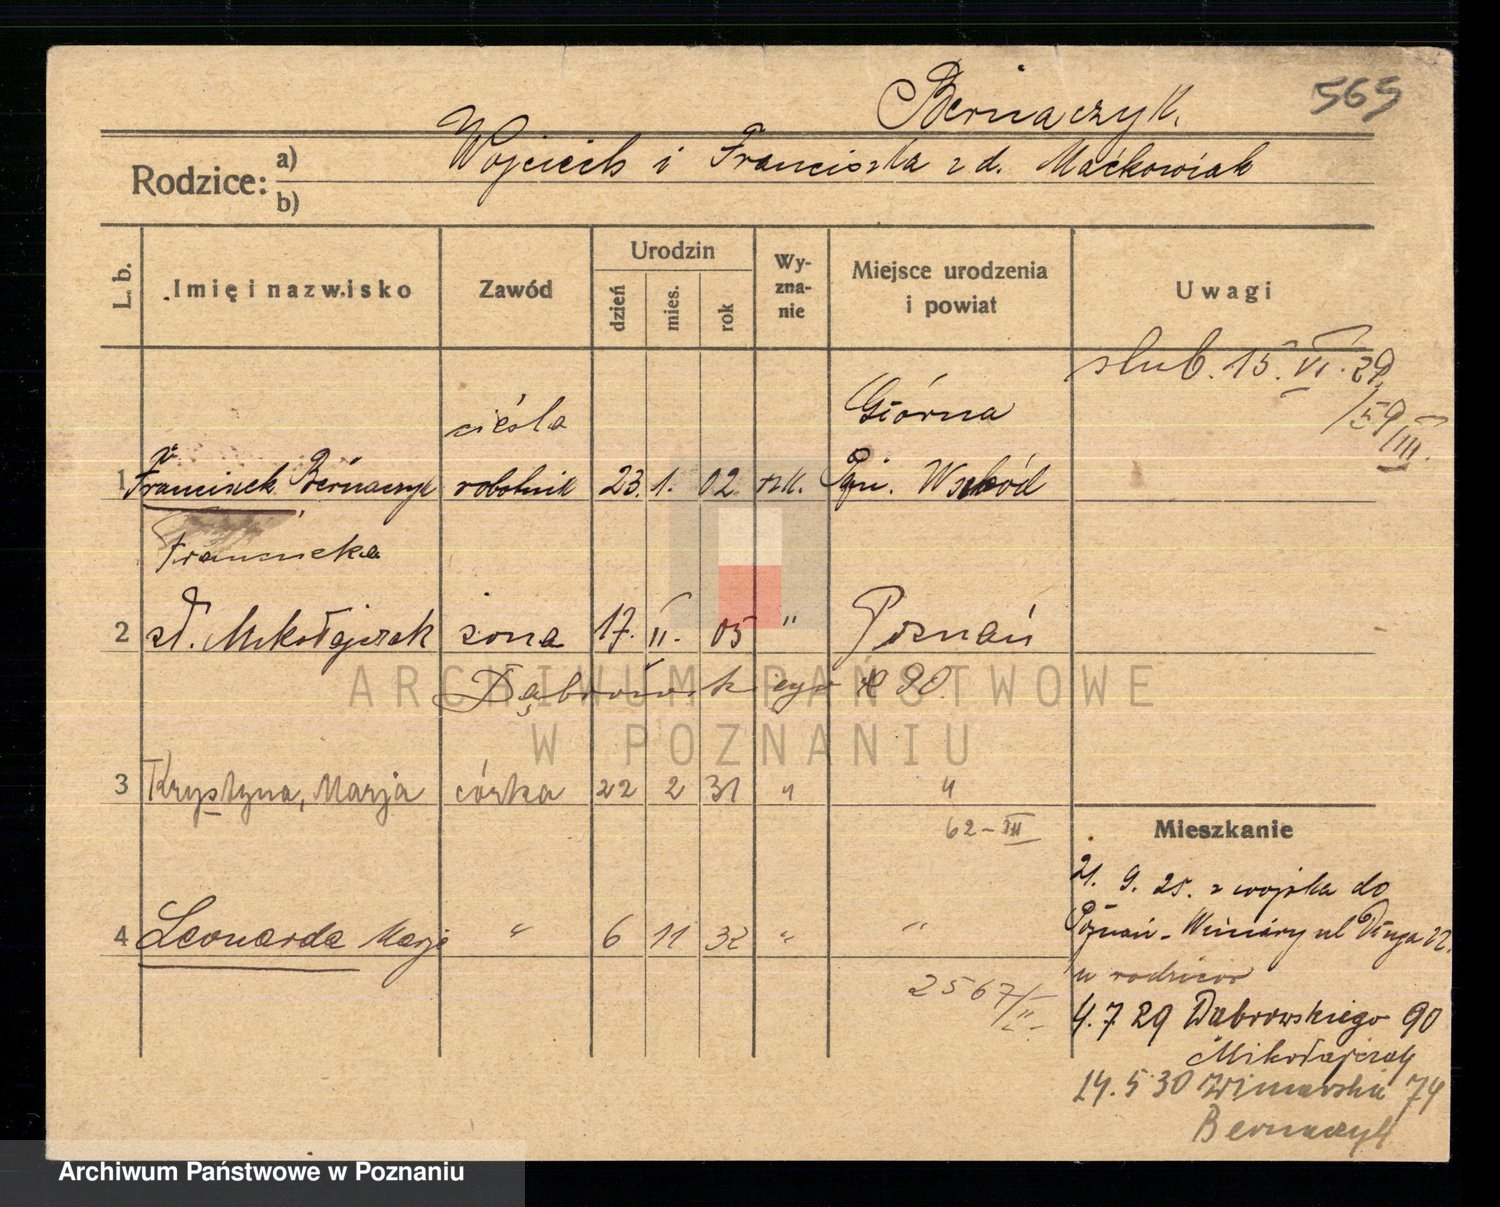 565
Bernaczyk.
Rodzice: a) Wojciech i Franciszka z d. Maćkowiak
b)
L. b. Imię i nazwisko Zawód Urodzin dzień mies. rok Wy-zna-nie Miejsce urodzenia i powiat Uwagi
ślub. 15. VI. 29
/59/III.
cieśla Górna
1 Franciszek Bernaczyk robotnik 23. 1. 02 rzk. Wschód
Franciszka
2 Mikołajczak żona 17. II. 05 " Poznań
Dąbrowskiego 90
3 Krystyna, Marja córka 22 2 31 " "
62-III
4 Leonarda Marja " 6 11 32 " "
2567/II
Mieszkanie
21. 9. 25. z wojska do
Poznań - Winiary ul Długa 22.
u rodziców
4. 7 29 Dąbrowskiego 90
Mikołajczak
14. 5 30 Winiarska 74
Bernaczyk
ARCHIWUM PAŃSTWOWE
W POZNANIU
Archiwum Państwowe w Poznaniu